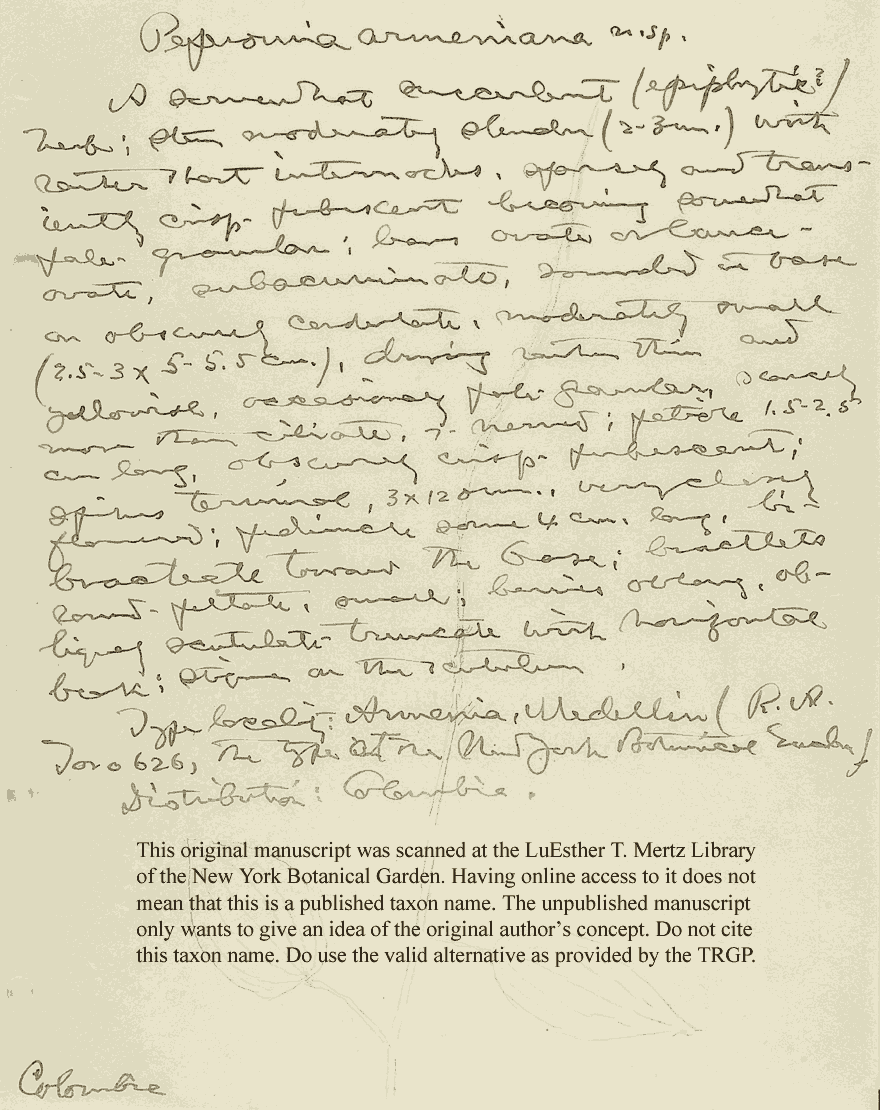 Peperomia armeniana n.sp.
A somewhat succulent (epiphytic?)
herb; stem moderately slender (2-3 mm.) with
rather short internodes, sparsely and trans-
iently crisp-pubescent becoming somewhat
pale-granular; leaves ovate or lance-
ovate, subacuminate, rounded at base
or obscurely cordulate, moderately small
(2.5-3 x 5-5.5 cm.), drying rather thin and
yellowish, occasionally pale-granular, scarcely
more than ciliate, nerved; petiole 1.5-2.5
cm long, obscurely crisp-pubescent;
spikes terminal, 3 x 120 mm., very closely
flowered; peduncle some 4 cm. long, bi-
bracteate toward the base; bractlets
round-peltate, small; berries oblong, ob-
liquely scutulate-truncate with horizontal
beak; stigma on the scutulum.
Type locality: Armenia, Medellin (R. A.
Toro 626, the type at the New York Botanical Garden)
Distribution: Colombia.
This original manuscript was scanned at the LuEsther T. Mertz Library
of the New York Botanical Garden. Having online access to it does not
mean that this is a published taxon name. The unpublished manuscript
only wants to give an idea of the original author's concept. Do not cite
this taxon name. Do use the valid alternative as provided by the TRGP.
Colombia